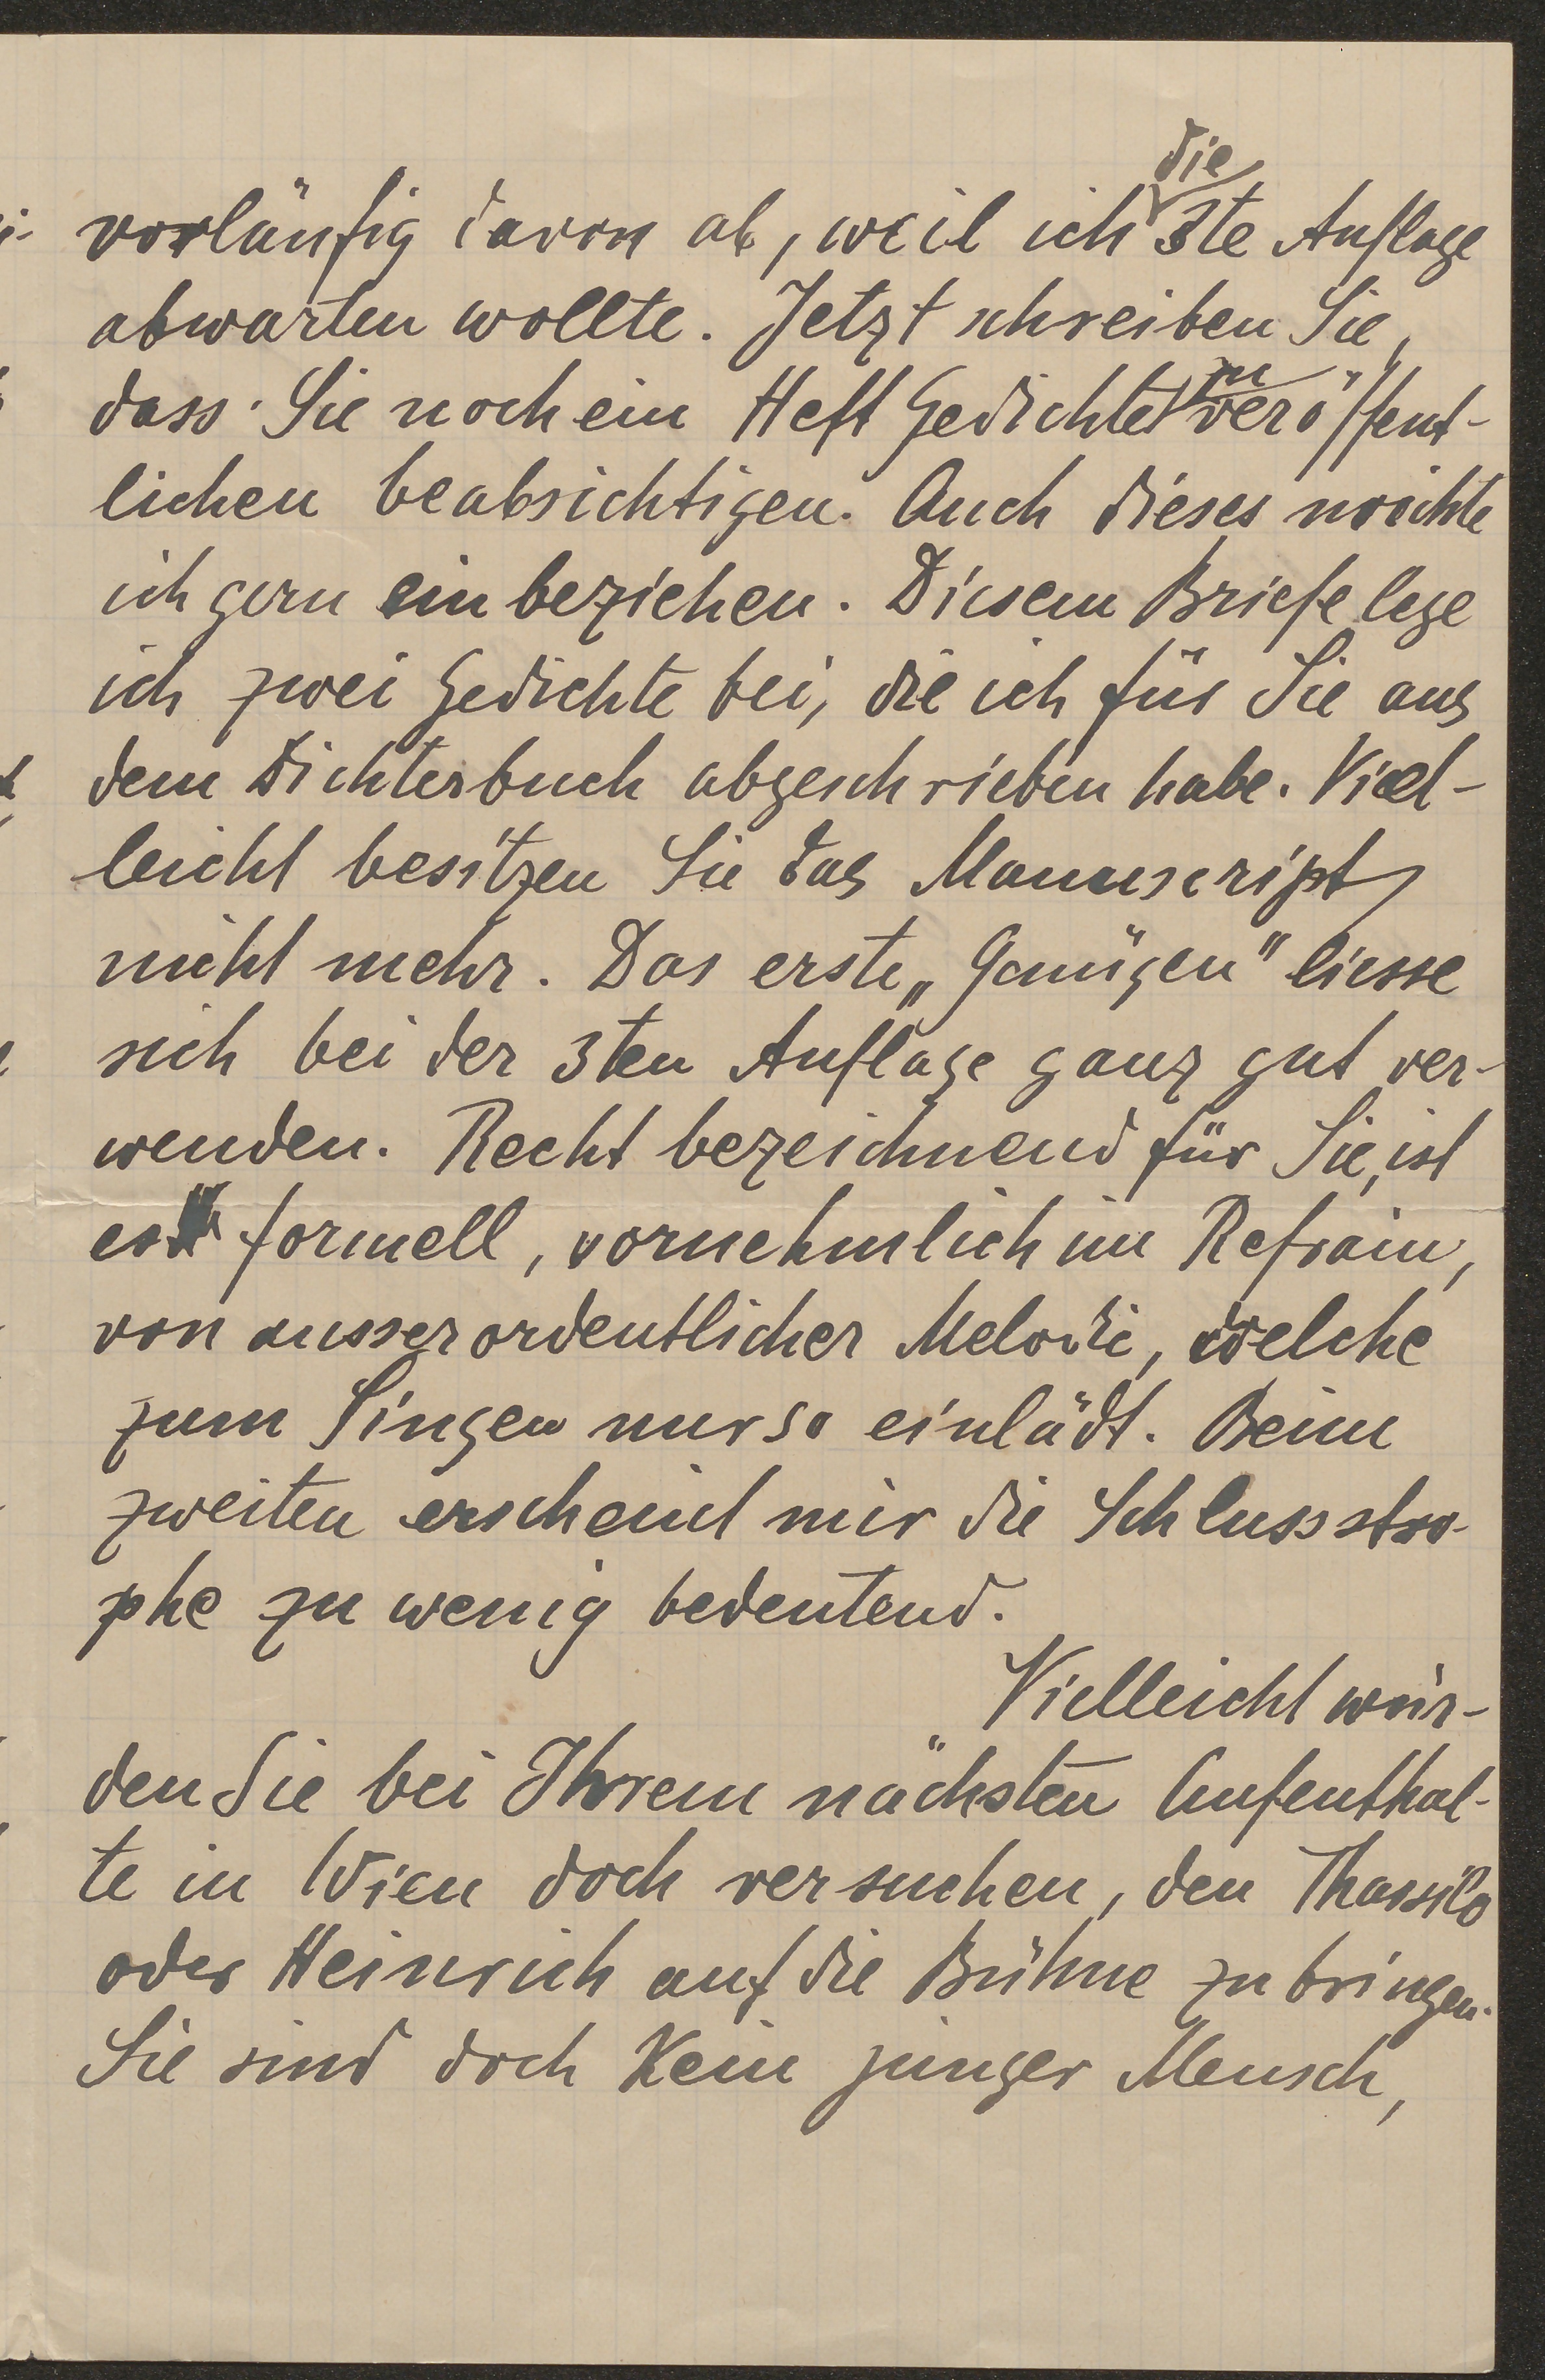 vorläufig davon ab, weil ich die 3te Auflage
abwarten wollte. Jetzt schreiben Sie,
dass Sie noch ein Heft Gedichte zu veröffent-
lichen beabsichtigen. Auch dieses möchte
ich gern einbeziehen. Diesem Briefe lege
ich zwei Gedichte bei, die ich für Sie aus
dem Dichterbuch abgeschrieben habe. Viel-
leicht besitzen Sie das Manuscript
nicht mehr. Das erste „Genügen" liesse
sich bei der 3ten Auflage ganz gut ver-
wenden. Recht bezeichnend für Sie, ist
es formell, vornehmlich im Refrain,
von ausserordentlicher Melodie, welche
zum Singen nur so einlädt. Beim
zweiten erscheint mir die Schlussstro-
phe zu wenig bedeutend.
Vielleicht wür-
den Sie bei Ihrem nächsten Aufenthal-
te in Wien doch versuchen, den Thassilo
oder Heinrich auf die Bühne zu bringen.
Sie sind doch kein junger Mensch,